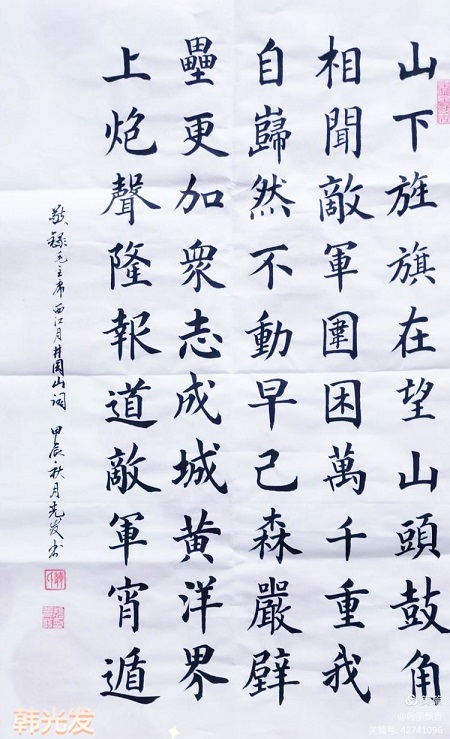 山下旌旗在望山頭鼓角
相聞敵軍圍困萬千重我
自巋然不動早已森嚴壁
壘更加衆志成城黄洋界
上炮聲隆報道敵軍宵遁
敬録毛主席西江月井冈山词 甲辰秋月光发书
韩光发
美篇
美篇号: 42741096